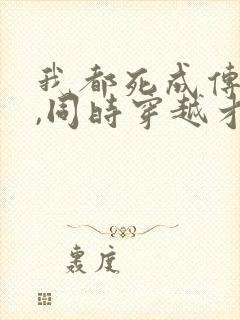 我都死成傳
,同時穿越才
裹度